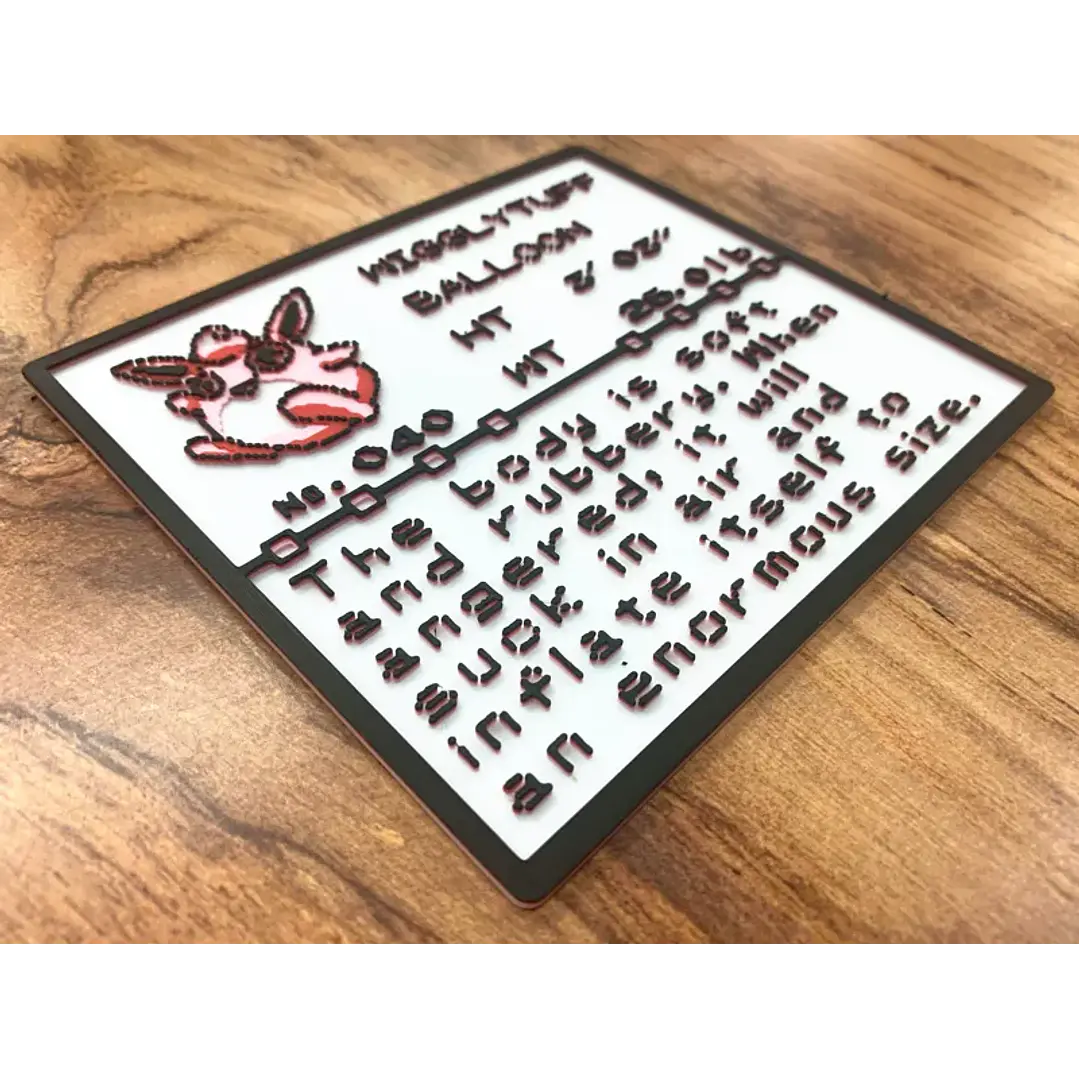 WIGGLYTUFF
BALLOON
HT 3' 03"
WT 26.0lb
No. 040
The body is soft
and rubbery. When
angered, it will
suck in air and
inflate itself to
an enormous size.